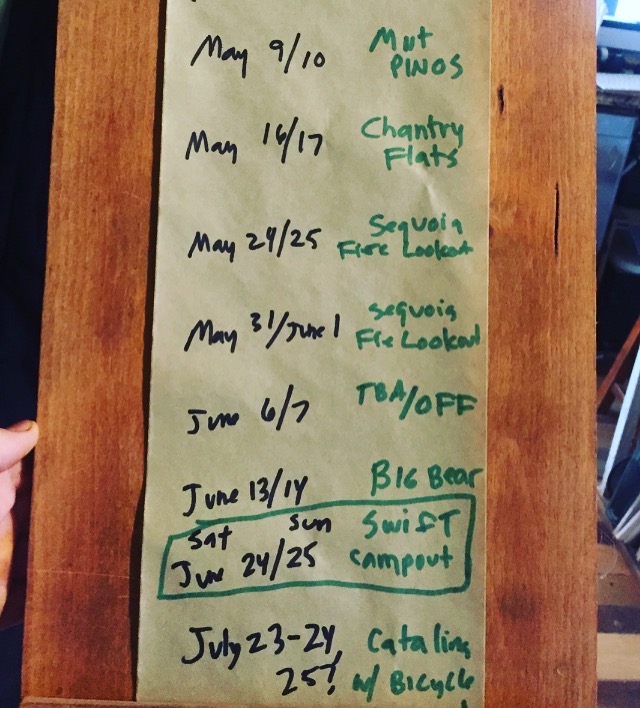 May 9/10 Mnt
PINOS
May 16/17 Chantry
Flats
May 24/25 Sequoia
Fire Lookout
May 31/June 1 Sequoia
Fire Lookout
June 6/7 TBA/OFF
June 13/14 BIG Bear
Sat Sun Swift
June 24/25 Campout
July 23-24, Catalina
25? w/ Bicycle